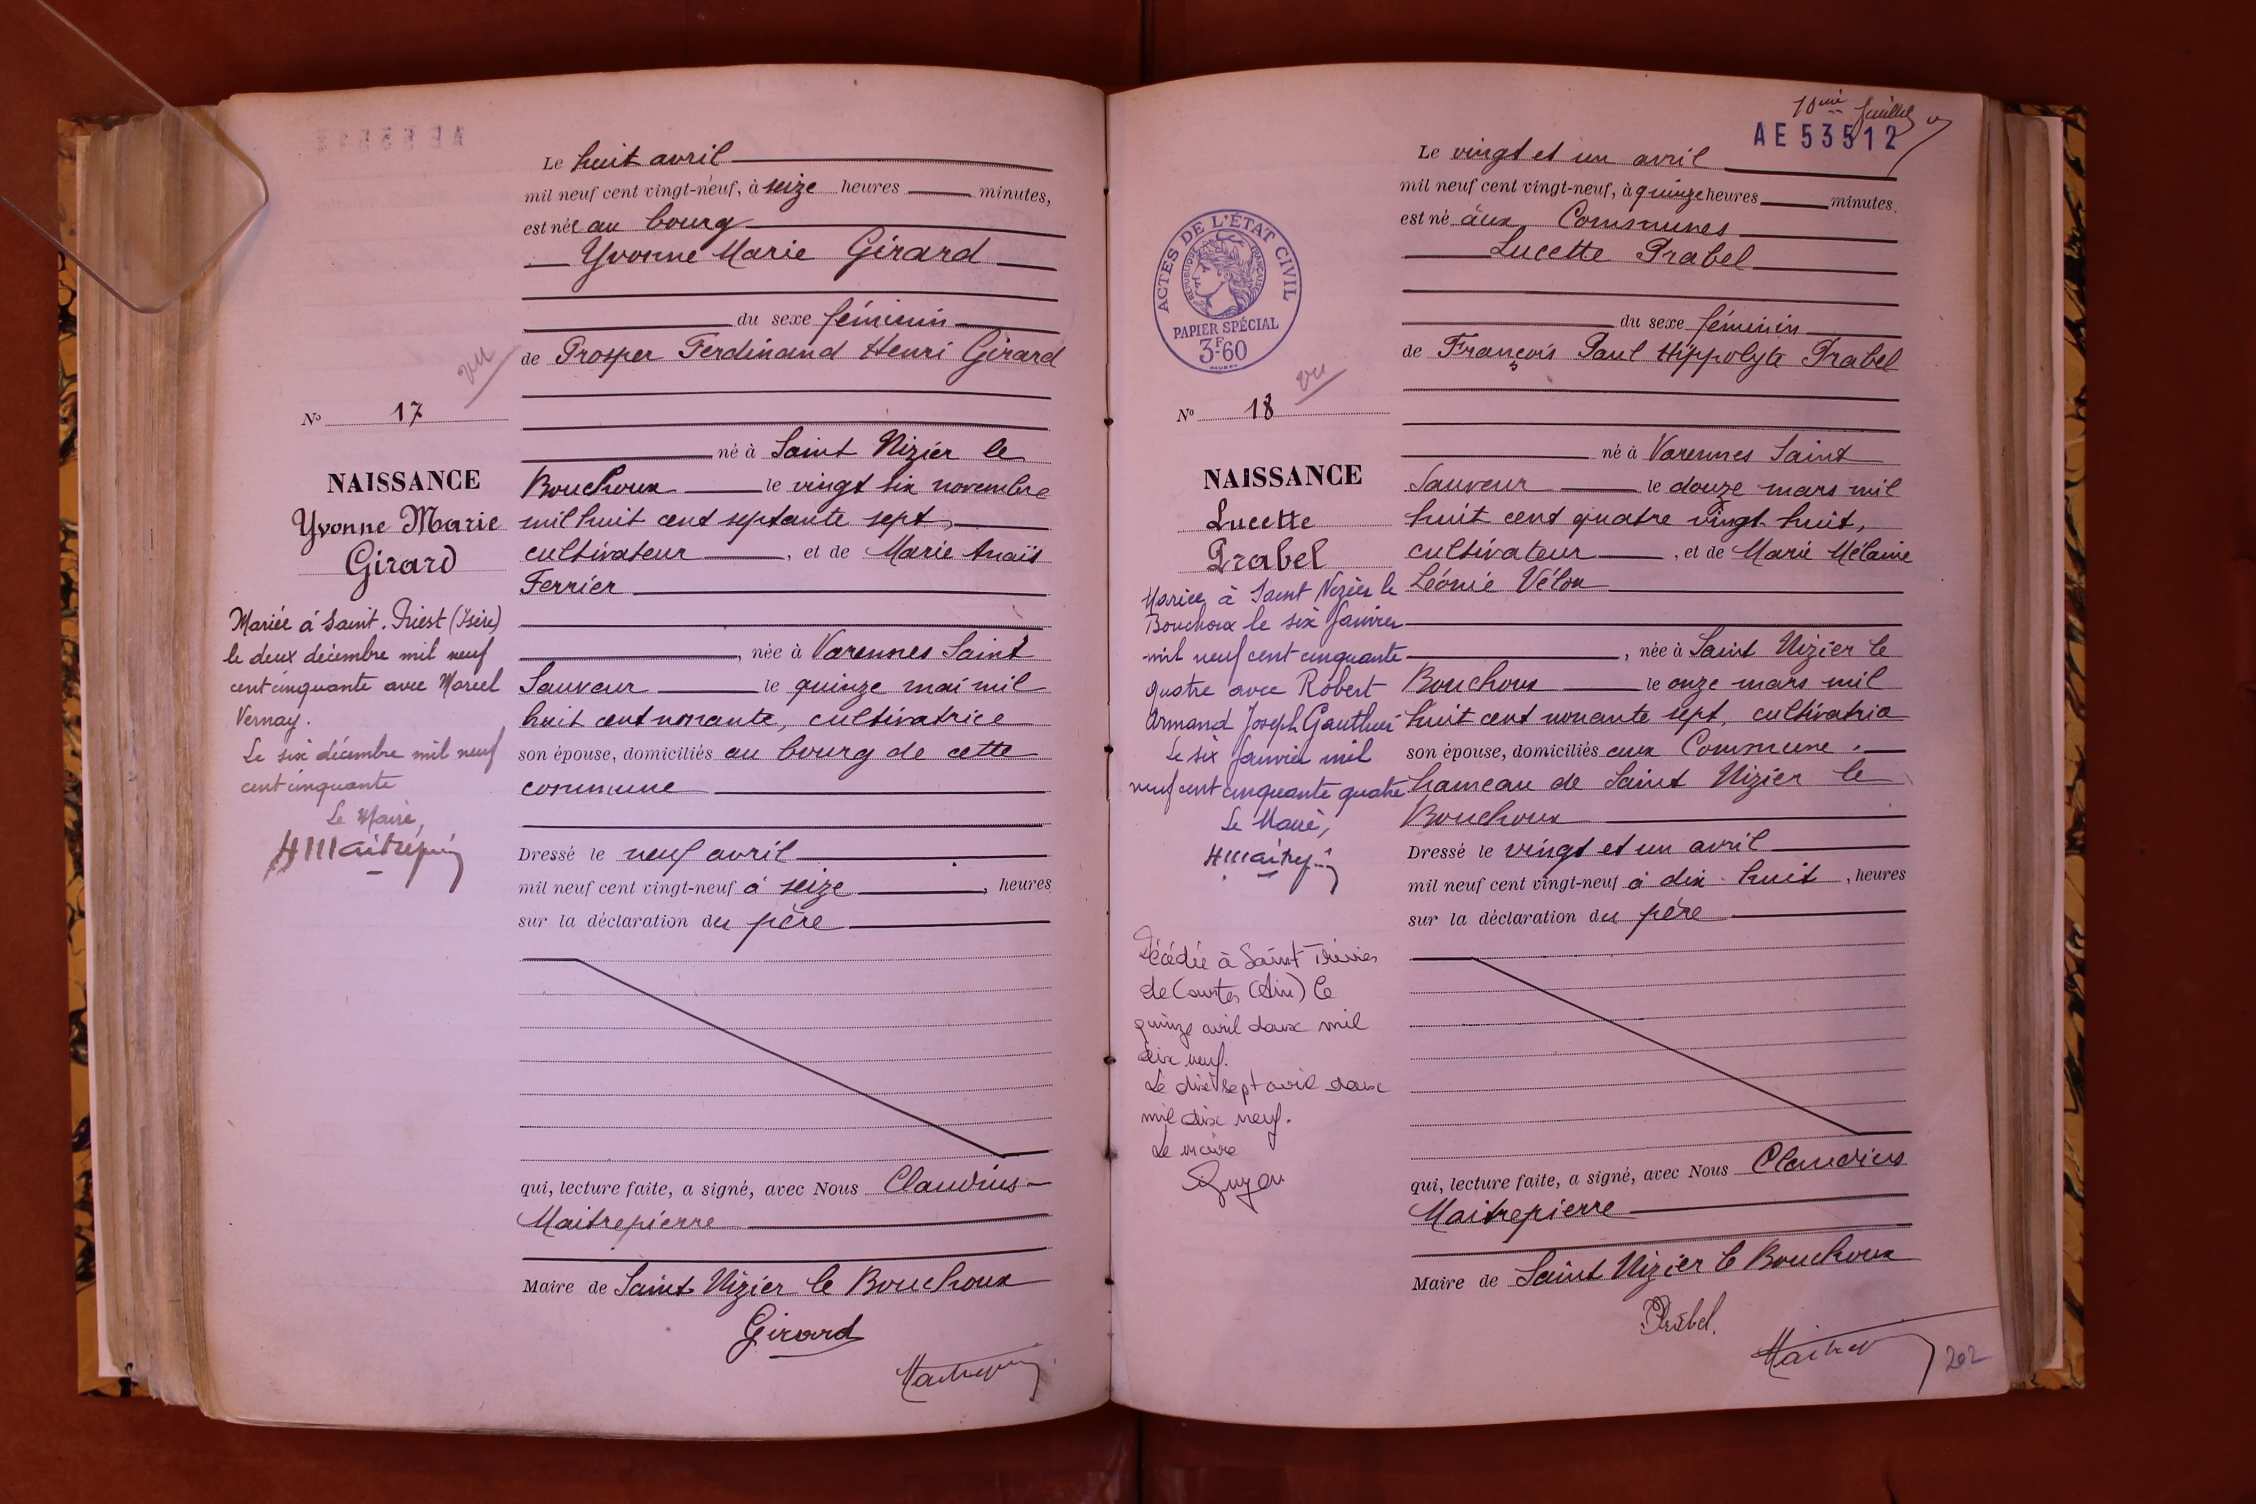 Le huit avril
mil neuf cent vingt-neuf, à seize heures minutes,
est née au bourg
Yvonne Marie Girard
du sexe féminin
de Prosper Ferdinand Henri Girard
vu
No 17
né à Saint Nizier le
NAISSANCE
Bouchoux le vingt six novembre
Yvonne Marie
mil huit cent septante sept,
Girard
cultivateur, et de Marie Anaïs
Ferrier
Mariée à Saint. Priest (Isère)
le deux décembre mil neuf
cent cinquante avec Marcel
Vernay.
Le six décembre mil neuf
cent cinquante
Le Maire,
, née à Varennes Saint
Sauveur le quinze mai mil
huit cent nonante, cultivatrice
son épouse, domiciliés au bourg de cette
commune
Dressé le neuf avril
mil neuf cent vingt-neuf à seize, heures
sur la déclaration du père
qui, lecture faite, a signé, avec Nous Claudius
Maitrepierre
Maire de Saint Nizier le Bouchoux
Girard
10me feuillet
AE 53512
Le vingt et un avril
mil neuf cent vingt-neuf, à quinze heures minutes.
est né aux Communes
Lucette Prabel
ACTES DE L'ÉTAT CIVIL
RÉPUBLIQUE FRANÇAISE
PAPIER SPÉCIAL
3F60
du sexe féminin
de François Paul Hippolyte Prabel
vu
No 18
né à Varennes Saint
NAISSANCE
Sauveur le douze mars mil
Lucette
huit cent quatre vingt huit,
Prabel
cultivateur, et de Marie Mélanie
Léonie Vélon
Mariée à Saint Nizier le
Bouchoux le six Janvier
mil neuf cent cinquante
quatre avec Robert
Armand Joseph Gauthier
Le six Janvier mil
neuf cent cinquante quatre
Le Maire,
, née à Saint Nizier le
Bouchoux le onze mars mil
huit cent nonante sept, cultivatrice
son épouse, domiciliés aux Commune.
hameau de Saint Nizier le
Bouchoux
Dressé le vingt et un avril
mil neuf cent vingt-neuf à dix huit, heures
sur la déclaration du père
Décédée à Saint Trivier
de Courtes (Ain) le
quinze avril deux mil
dix neuf.
Le dix sept avril deux
mil dix neuf.
Le maire
qui, lecture faite, a signé, avec Nous Claudius
Maitrepierre
Maire de Saint Nizier le Bouchoux
Prabel.
202